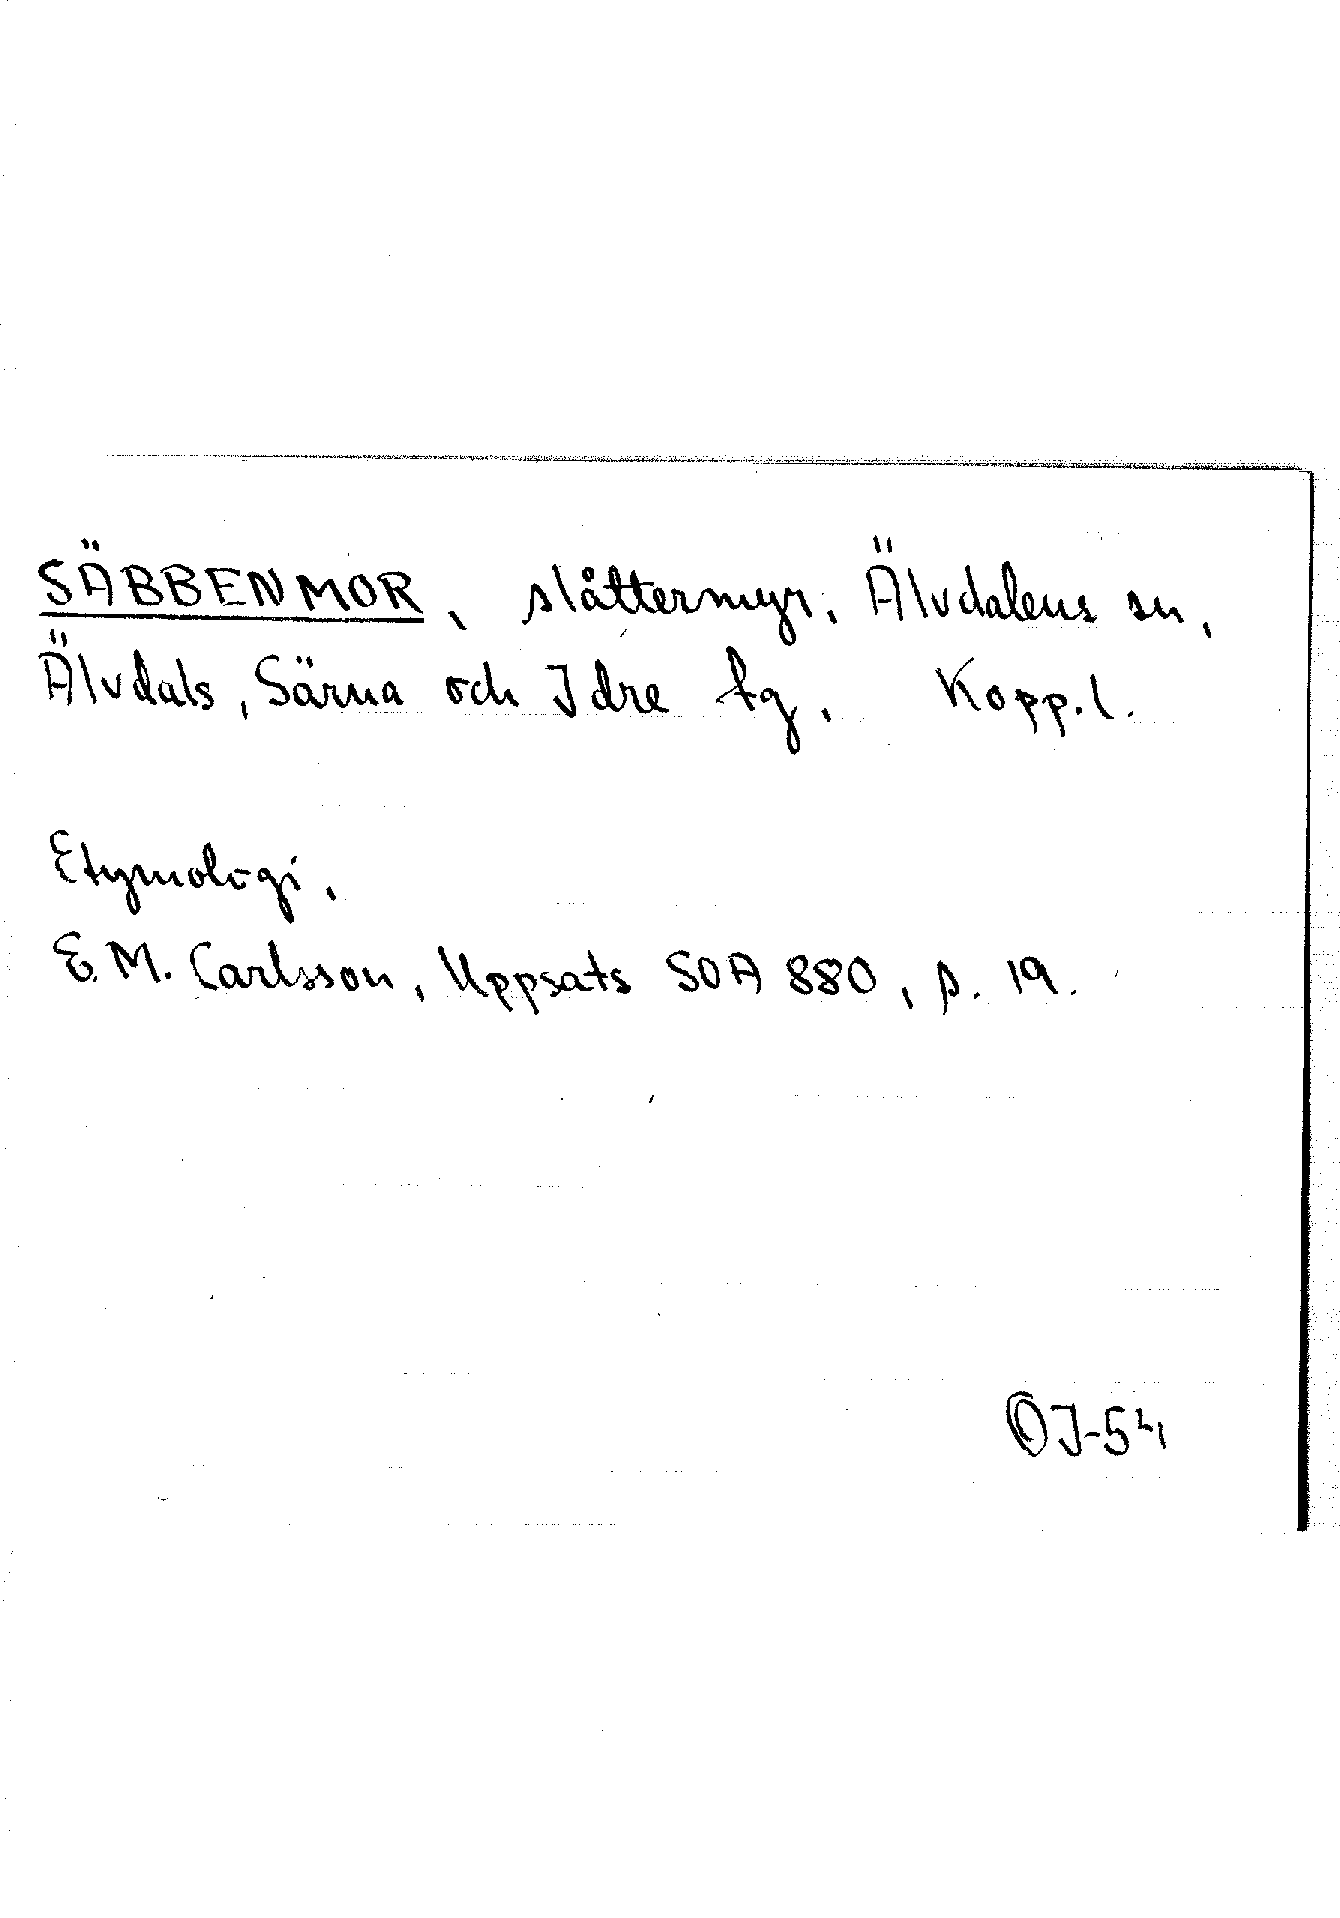 SÄBBENMOR, slåttermyr, Älvdalens sn,
Älvdals, Särna och Idre tg, Kopp. l.
Etymologi.
E. M. Carlsson, Uppsats SOA 880, s. 19.
OJ-54